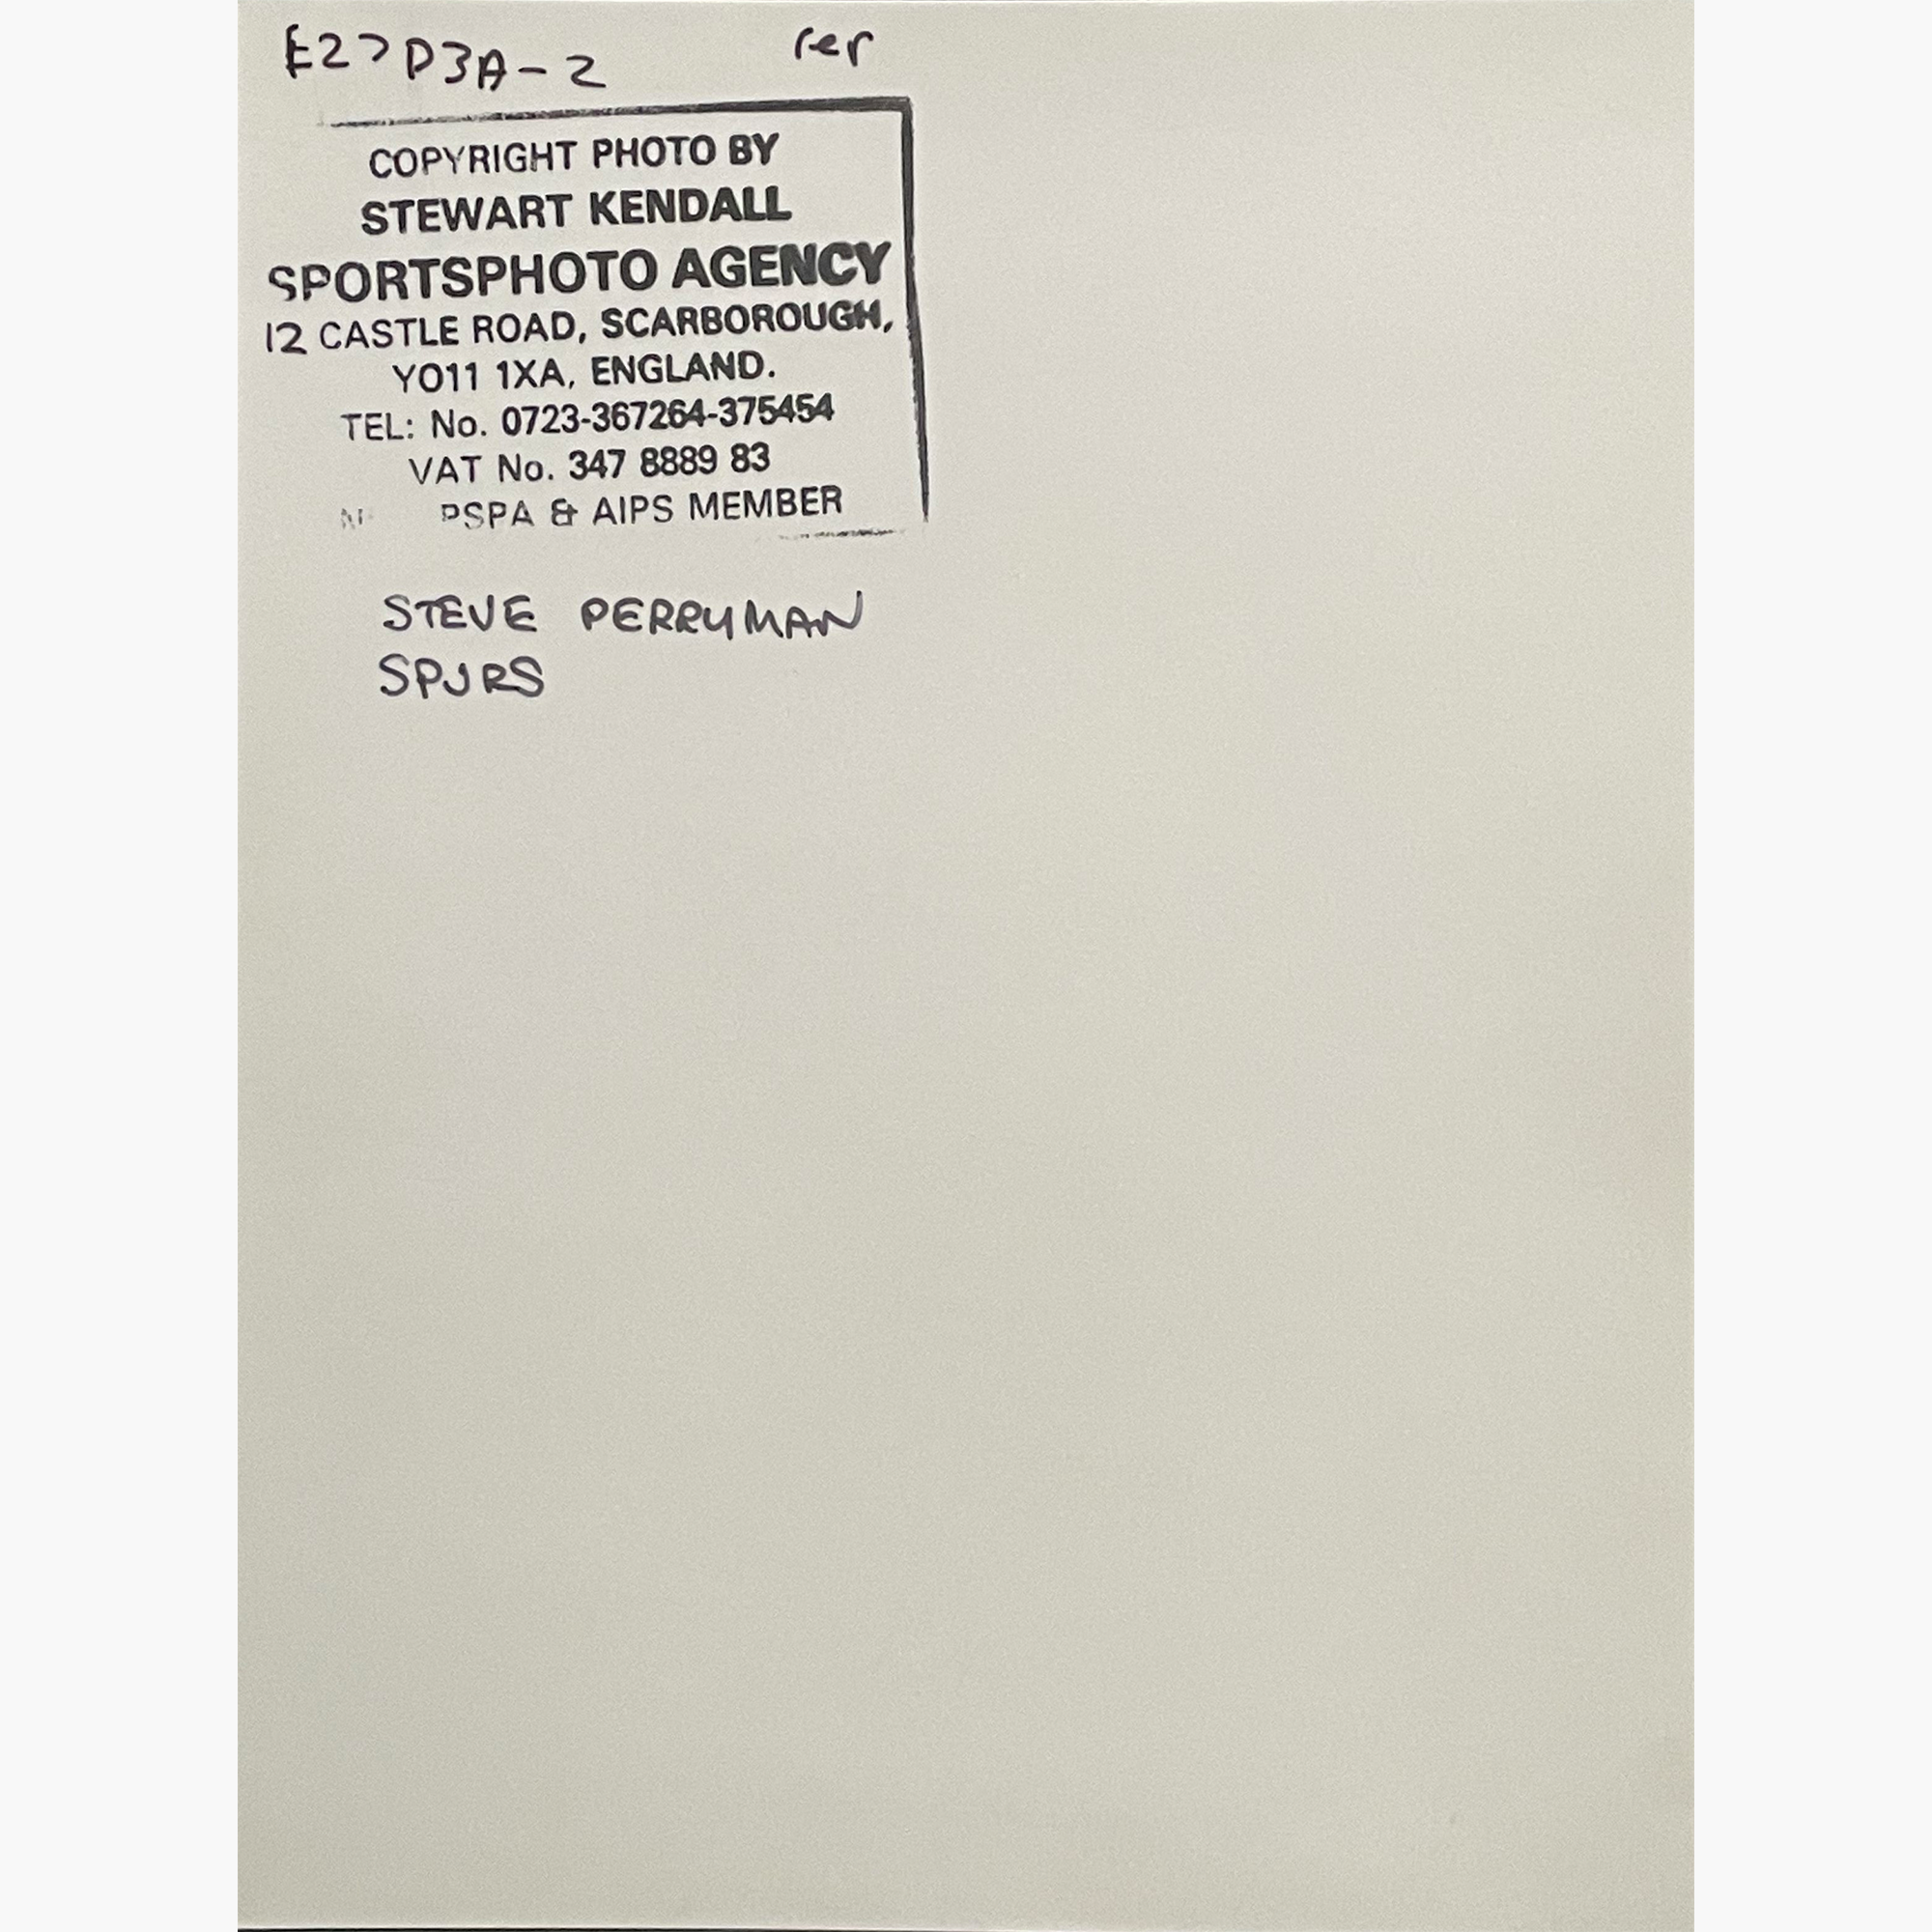 E27D3A-2 rer
COPYRIGHT PHOTO BY
STEWART KENDALL
SPORTSPHOTO AGENCY
12 CASTLE ROAD, SCARBOROUGH,
YO11 1XA, ENGLAND.
TEL: No. 0723-367264-375454
VAT No. 347 8889 83
PSPA & AIPS MEMBER
STEVE PERRYMAN
SPURS